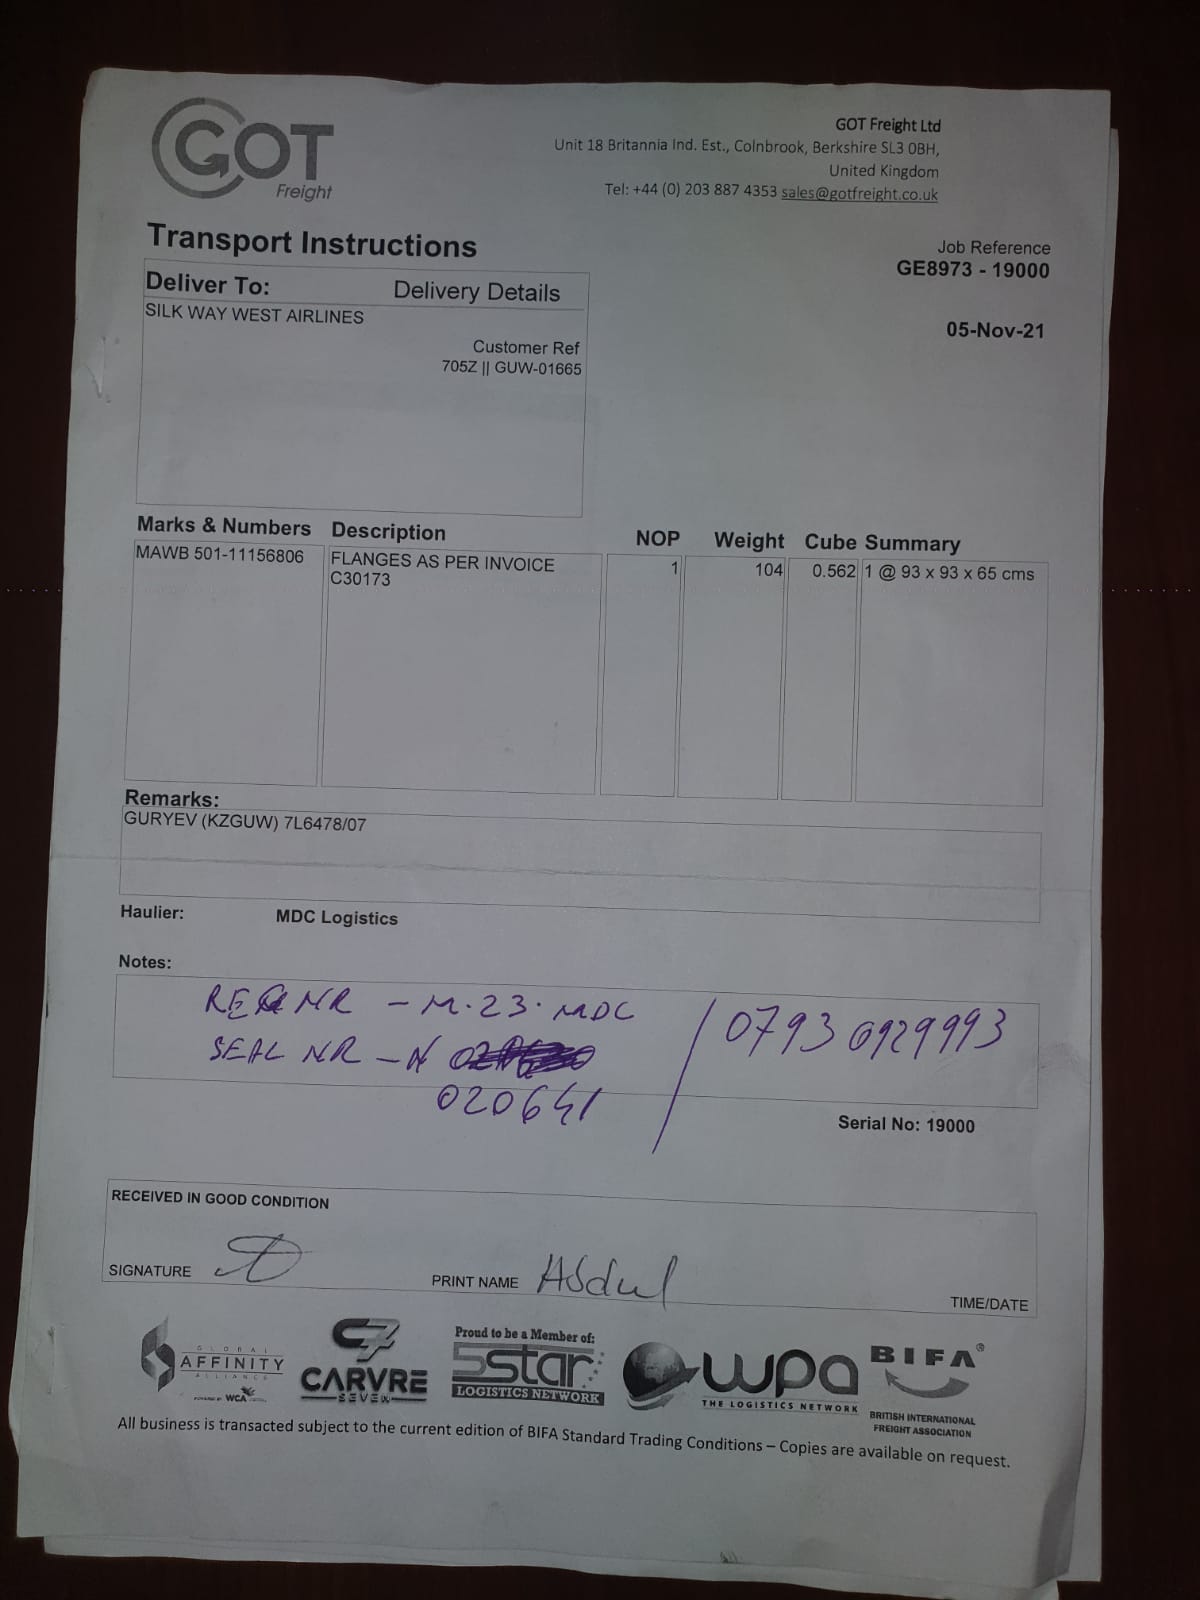 GOT
Freight
GOT Freight Ltd
Unit 18 Britannia Ind. Est., Colnbrook, Berkshire SL3 0BH,
United Kingdom
Tel: +44 (0) 203 887 4353 sales@gotfreight.co.uk
Transport Instructions
Job Reference
GE8973 - 19000
05-Nov-21
Deliver To: Delivery Details
SILK WAY WEST AIRLINES
Customer Ref
705Z || GUW-01665
Marks & Numbers Description NOP Weight Cube Summary
MAWB 501-11156806 FLANGES AS PER INVOICE 1 104 0.562 1 @ 93 x 93 x 65 cms
C30173
Remarks:
GURYEV (KZGUW) 7L6478/07
Haulier: MDC Logistics
Notes:
REG NR - M.23.MDC / 07936929993
SEAL NR - N
020641
Serial No: 19000
RECEIVED IN GOOD CONDITION
SIGNATURE PRINT NAME Abdul TIME/DATE
GLOBAL
AFFINITY
ALLIANCE
POWERED BY WCA
C7
CARVRE
SEVEN
Proud to be a Member of:
5star
LOGISTICS NETWORK
wpa
THE LOGISTICS NETWORK
BIFA®
BRITISH INTERNATIONAL
FREIGHT ASSOCIATION
All business is transacted subject to the current edition of BIFA Standard Trading Conditions – Copies are available on request.